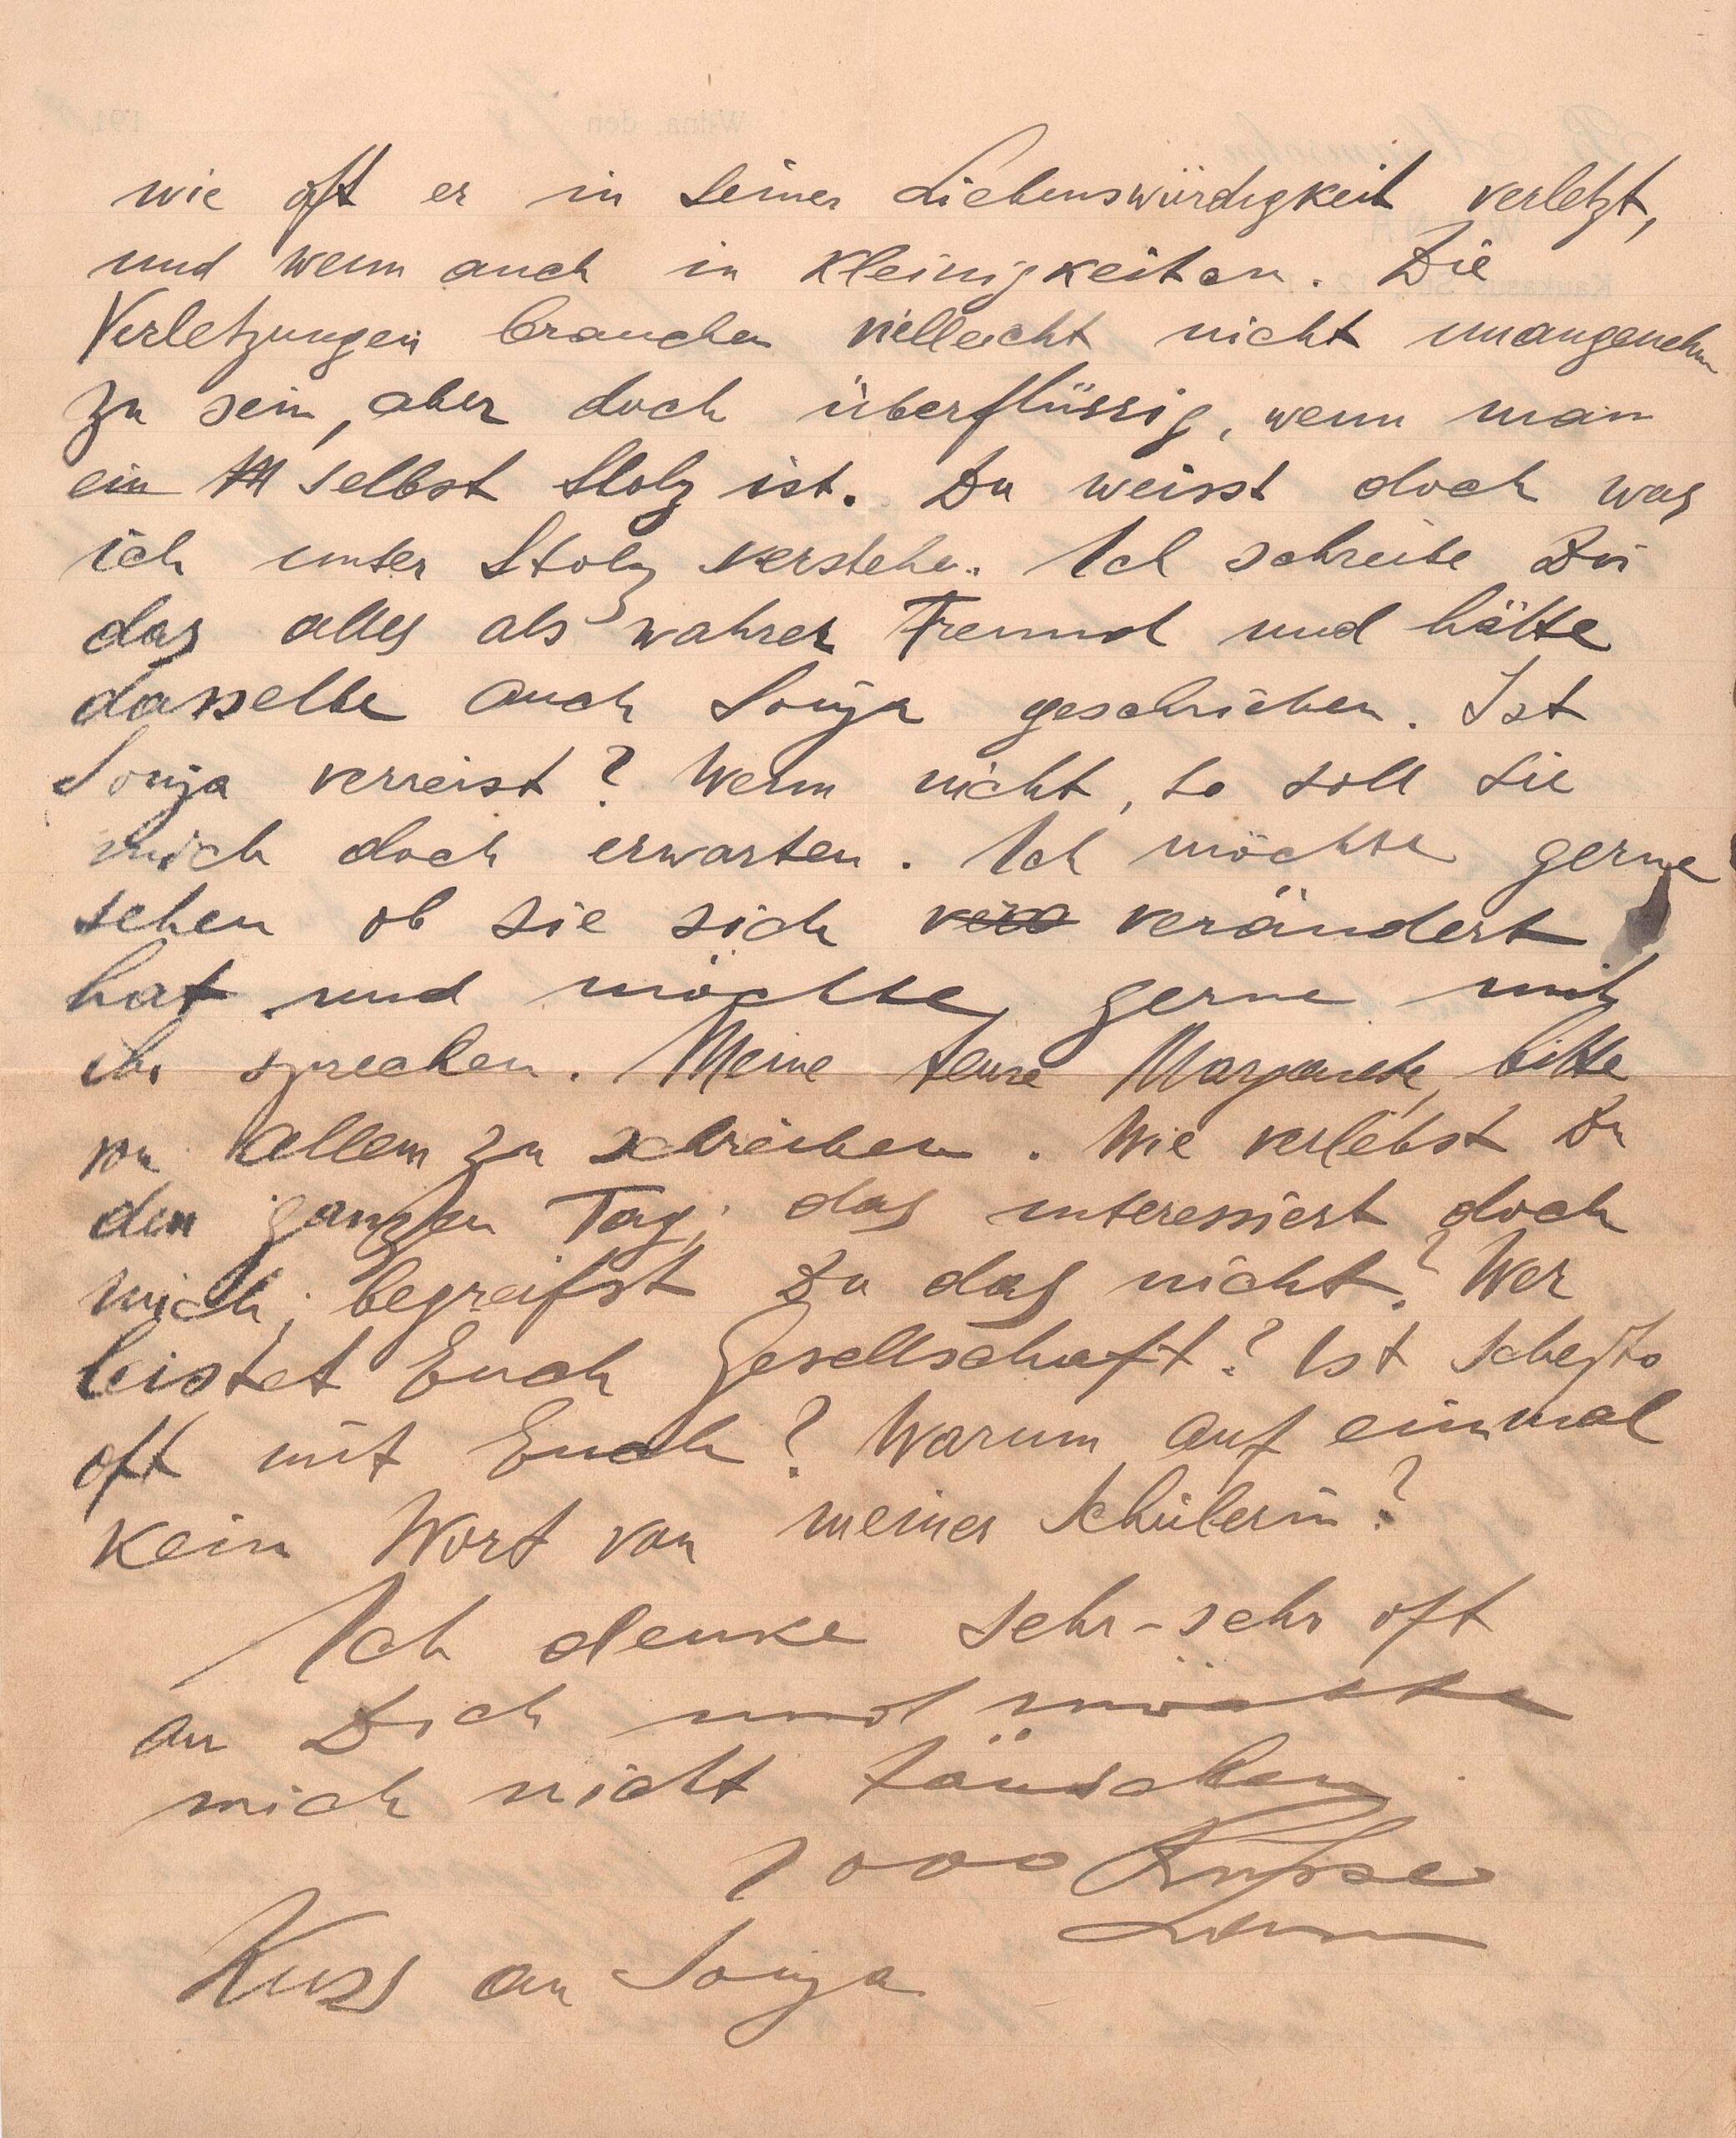 wie oft er in seiner Liebenswürdigkeit verletzt,
und wenn auch in Kleinigkeiten. Die
Verletzungen brauchen vielleicht nicht unangenehm
zu sein, aber doch überflüssig, wenn man
ein selbst Stolz ist. Du weisst doch was
ich unter Stolz verstehe. Ich schreibe Dir
das alles als wahrer Freund und hätte
dasselbe auch Sonja geschrieben. Ist
Sonja verreist? Wenn nicht, so soll sie
mich doch erwarten. Ich möchte gerne
sehen ob sie sich verändert
hat und möchte gerne mit
ihr sprechen. Meine teure Margarete, bitte
von allem zu schreiben. Wie verlebst Du
den ganzen Tag; das interessiert doch
mich; begreifst Du das nicht? Wer
leistet Euch Gesellschaft? Ist
oft mit Euch? Warum auf einmal
kein Wort von meiner Schülerin?
Ich denke sehr-sehr oft
an Dich und möchte
mich nicht täuschen.
1000 Küsse
Kuss an Sonja